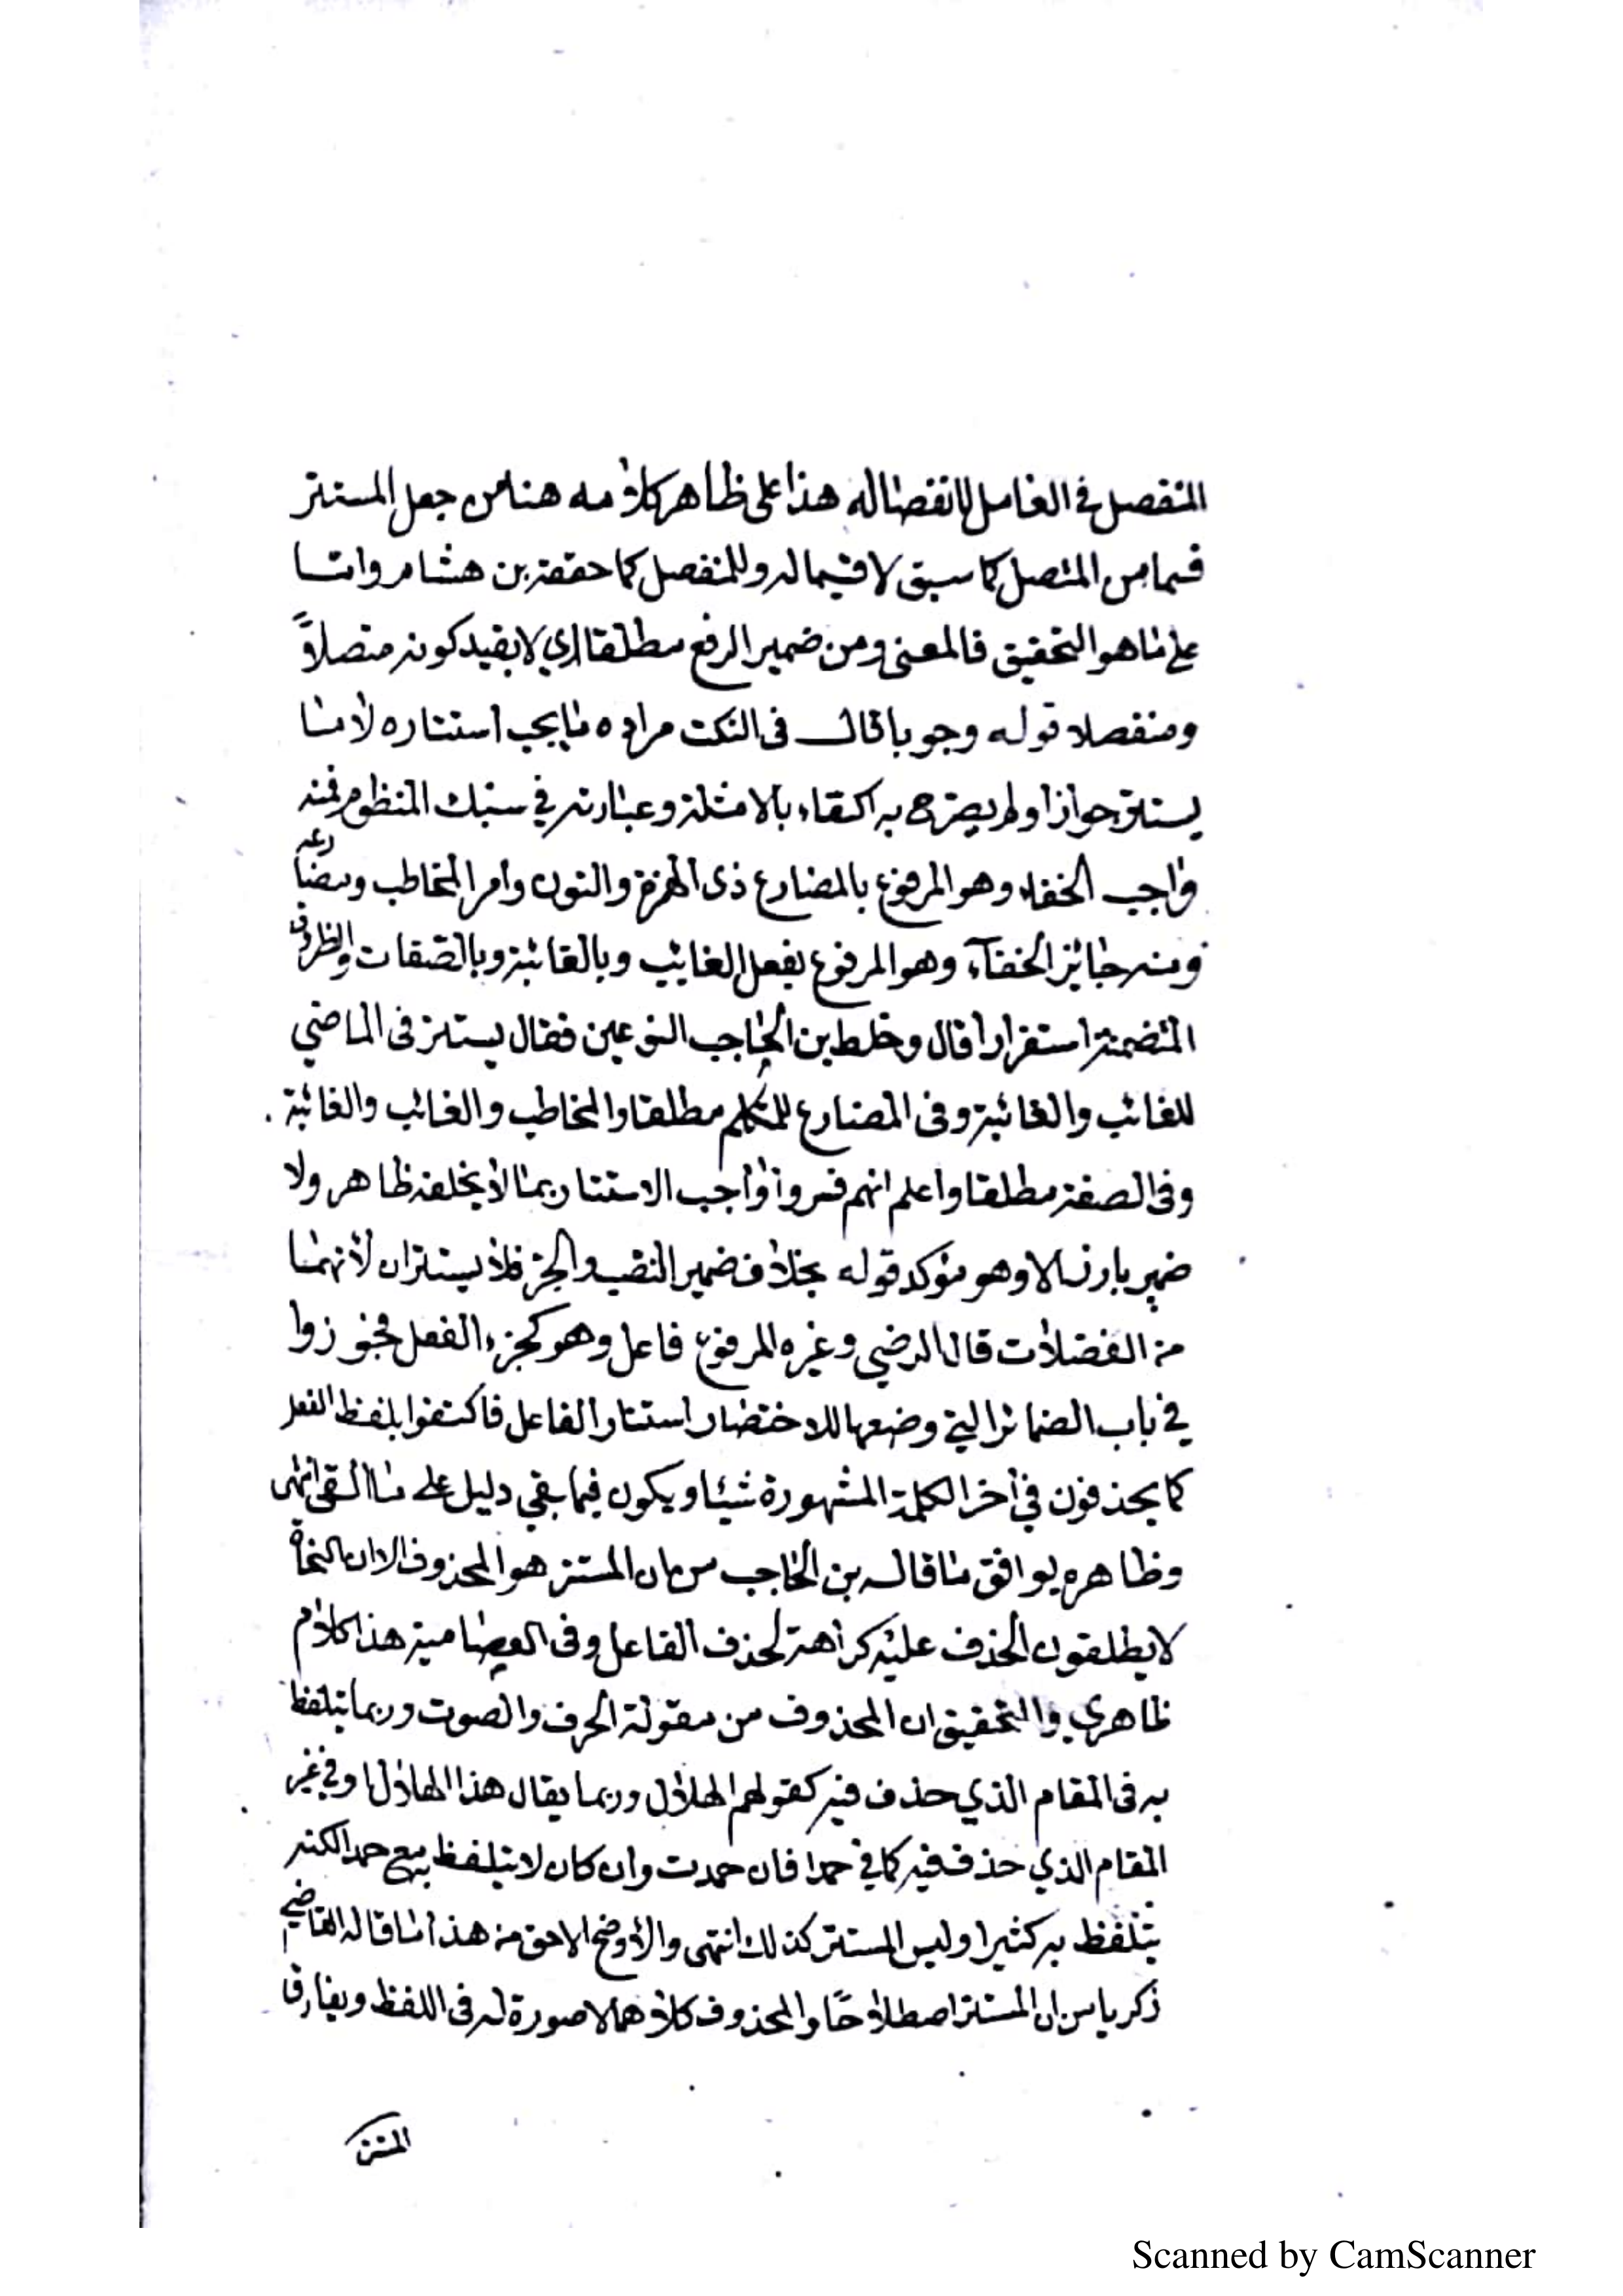 المنفصل في العامل لانفصاله هذا على ظاهر كلامه هنا من جعل المستتر
قسما من المتصل كما سبق لا قيما له وللمنفصل كما حققه بن هشام واما
على ما هو التحقيق فالمعنى ومن ضمير الرفع مطلقا اي لا بقيد كونه متصلاً
ومنفصلا قوله وجوبا قال في النكت مراده ما يجب استتاره لا ما
يستتر جوازا ولم يصرح به اكتفاء بالامثلة وعبارته في سبك المنظوم فمنه
واجب الخفاء وهو المرفوع بالمضارع ذى الهمزة والنون وامر المخاطب ومضارعه
ومنه جائز الخفآء وهو المرفوع بفعل الغايب وبالغائبة وبالصفات والظروف
المتضمنة استقرارا قال وخلط بن الحاجب النوعين فقال يستتر في الماضي
للغائب والغائبة وفى المضارع للمتكلم مطلقا والمخاطب والغائب والغائبة .
وفى الصفة مطلقا واعلم انهم فسروا واجب الاستتار بما لا يخلفه ظاهر ولا
ضمير بارز الا وهو مؤكد قوله بخلاف ضمير النصب والجر فلا يستتران لأنهما
من الفضلات قال الرضي وغيره المرفوع فاعل وهو كجزء الفعل فجوزوا
في باب الضمائر التي وضعها للاختصار استتار الفاعل فاكتفوا بلفظ الفعل
كما يحذفون في آخر الكلمة المشهورة شيئا ويكون فيما بقي دليل على ما القى انتهى
وظاهره يوافق ما قاله بن الحاجب من ان المستتر هو المحذوف الا ان النحاة
لا يطلقون الحذف عليه كراهة لحذف الفاعل وفى العصامية هذا كلام
ظاهري والتحقيق ان المحذوف من مقولة الحرف والصوت وربما يتلفظ
به فى المقام الذي حذف فيه كقولهم الهلال وربما يقال هذا الهلال وفي غير
المقام الذي حذف فيه كما في حمدا فان حمدت وان كان لا يتلفظ به مع حمدا لكنه
يتلفظ به كثيرا وليس المستتر كذلك انتهى والأوضح الاحق من هذا ما قاله القاضي
زكريا من ان المستتر اصطلاحًا والمحذوف كلاهما لا صورة له فى اللفظ ويفارق
المستتر
Scanned by CamScanner